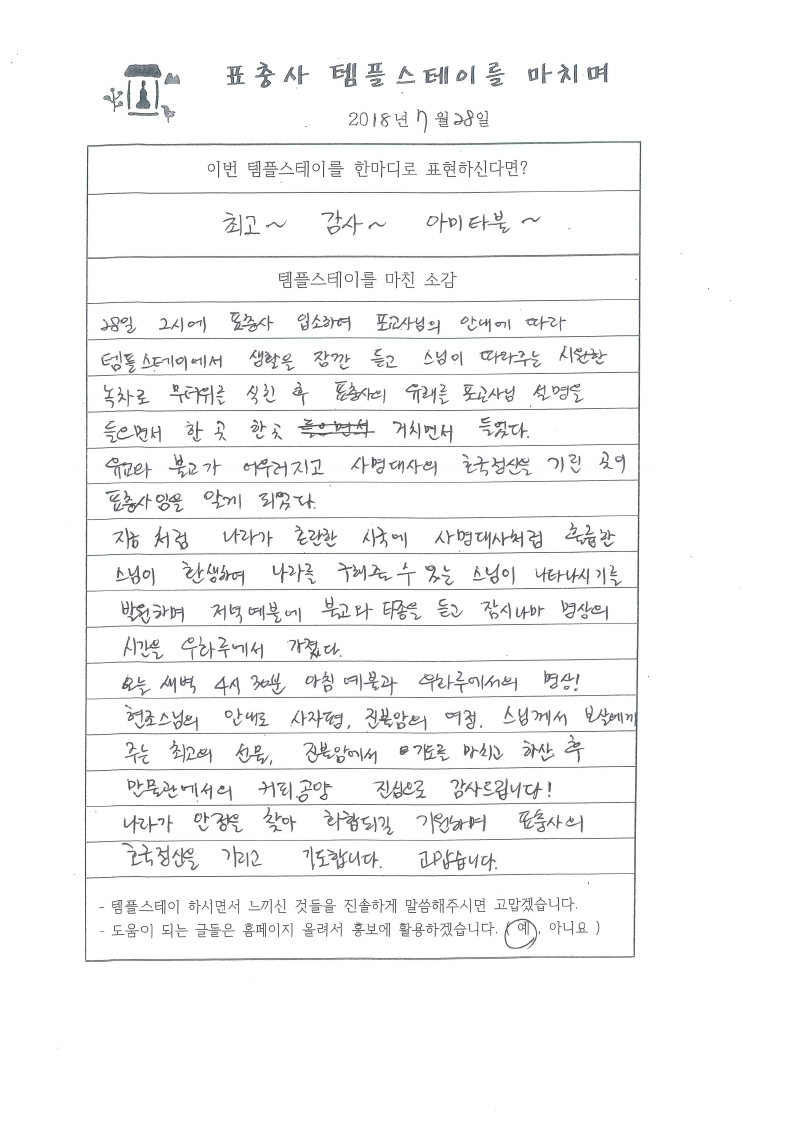 표충사 템플스테이를 마치며
2018년 7월 28일
이번 템플스테이를 한마디로 표현하신다면?
최고~ 감사~ 아미타불~
템플스테이를 마친 소감
28일 2시에 표충사 입소하여 포교사님의 안내에 따라
템플스테이에서 생활을 잠깐 듣고 스님이 따라주는 시원한
녹차로 무더위를 식힌 후 표충사의 유래를 포교사님 설명을
들으면서 한 곳 한 곳 들으면서 거치면서 들었다.
유교와 불교가 어우러지고 사명대사의 호국정신을 기린 곳이
표충사임을 알게 되었다.
지금 처럼 나라가 혼란한 시국에 사명대사처럼 훌륭한
스님이 환생하여 나라를 구해주는 수 있는 스님이 나타나시기를
발원하며 저녁예불에 북고와 타종을 듣고 잠시나마 명상의
시간을 우화루에서 가졌다.
오늘 새벽 4시 30분 아침 예불과 우화루에서의 명상!
현조스님의 안내로 사자평, 진불암의 여정, 스님께서 보살에게
주는 최고의 선물, 진불암에서 기도를 마치고 하산 후
만물관에서의 커피공양 진심으로 감사드립니다!
나라가 안정을 찾아 화합되길 기원하며 표충사의
호국정신을 기리고 기도합니다. 고맙습니다.
- 템플스테이 하시면서 느끼신 것들을 진솔하게 말씀해주시면 고맙겠습니다.
- 도움이 되는 글들은 홈페이지 올려서 홍보에 활용하겠습니다. ( 예 , 아니요 )